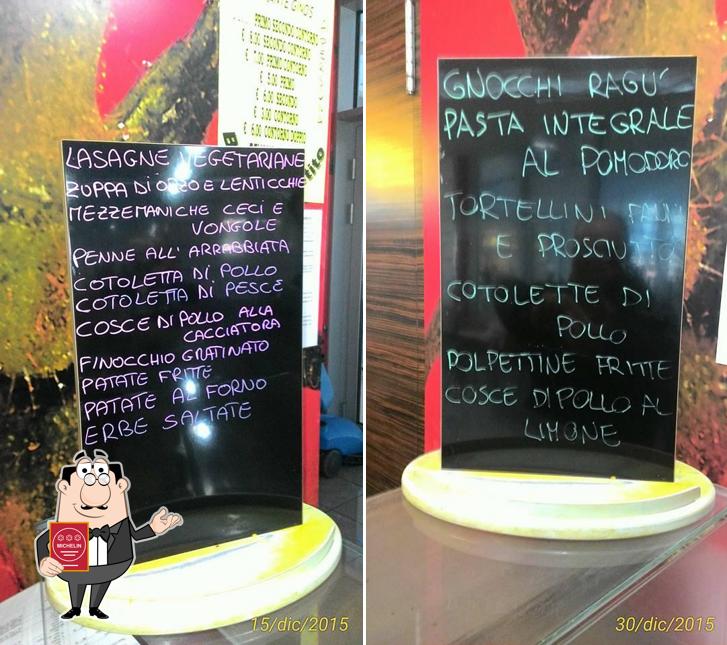 PRIMO SECONDO CONTORNO
SECONDO CONTORNO
PRIMO CONTORNO
PRIMO
€ 6.00 SECONDO
CONTORNO
LASAGNE VEGETARIANE
ZUPPA DI ORZO E LENTICCHIE
MEZZEMANICHE CECI E
VONGOLE
PENNE ALL' ARRABBIATA
COTOLETTA DI POLLO
COTOLETTA DI PESCE
COSCE DI POLLO ALLA
CACCIATORA
FINOCCHIO GRATINATO
PATATE FRITTE
PATATE AL FORNO
ERBE SALTATE
MICHELIN
15/dic/2015
GNOCCHI RAGU'
PASTA INTEGRALE
AL POMODORO
TORTELLINI
E PROSCIUTTO
COTOLETTE DI
POLLO
POLPETTINE FRITTE
COSCE DI POLLO AL
LIMONE
30/dic/2015